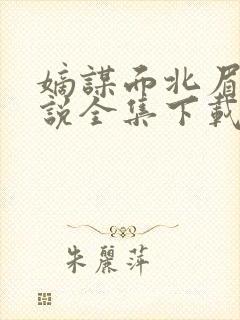 嫡謀而北眉
説全集下載
朱麗萍